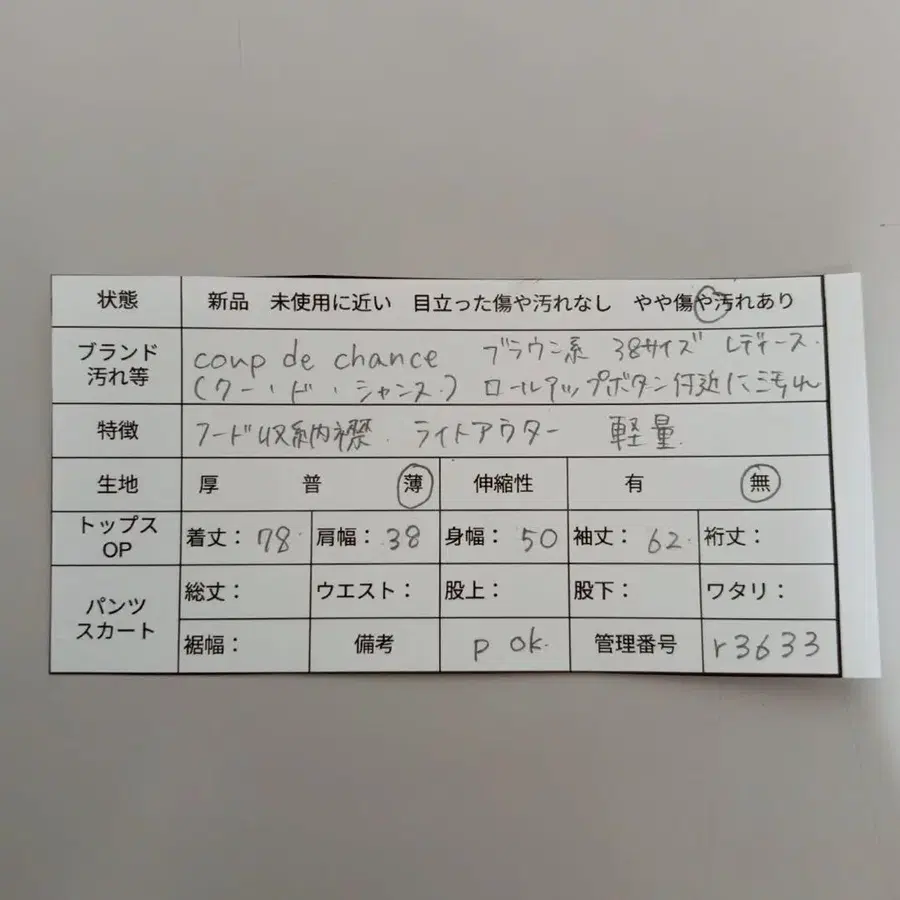 状態 新品 未使用に近い 目立った傷や汚れなし やや傷や汚れあり
ブランド 汚れ等 coup de chance ブラウン系 38サイズ レディース.
(クー・ド・シャンス.) ロールアップボタン付近に汚れ
特徴 フード収納襟. ライトアウター 軽量.
生地 厚 普 薄 伸縮性 有 無
トップス OP 着丈: 78. 肩幅: 38 身幅: 50 袖丈: 62. 裄丈:
パンツ スカート 総丈: ウエスト: 股上: 股下: ワタリ:
裾幅: 備考 p ok. 管理番号 r3633